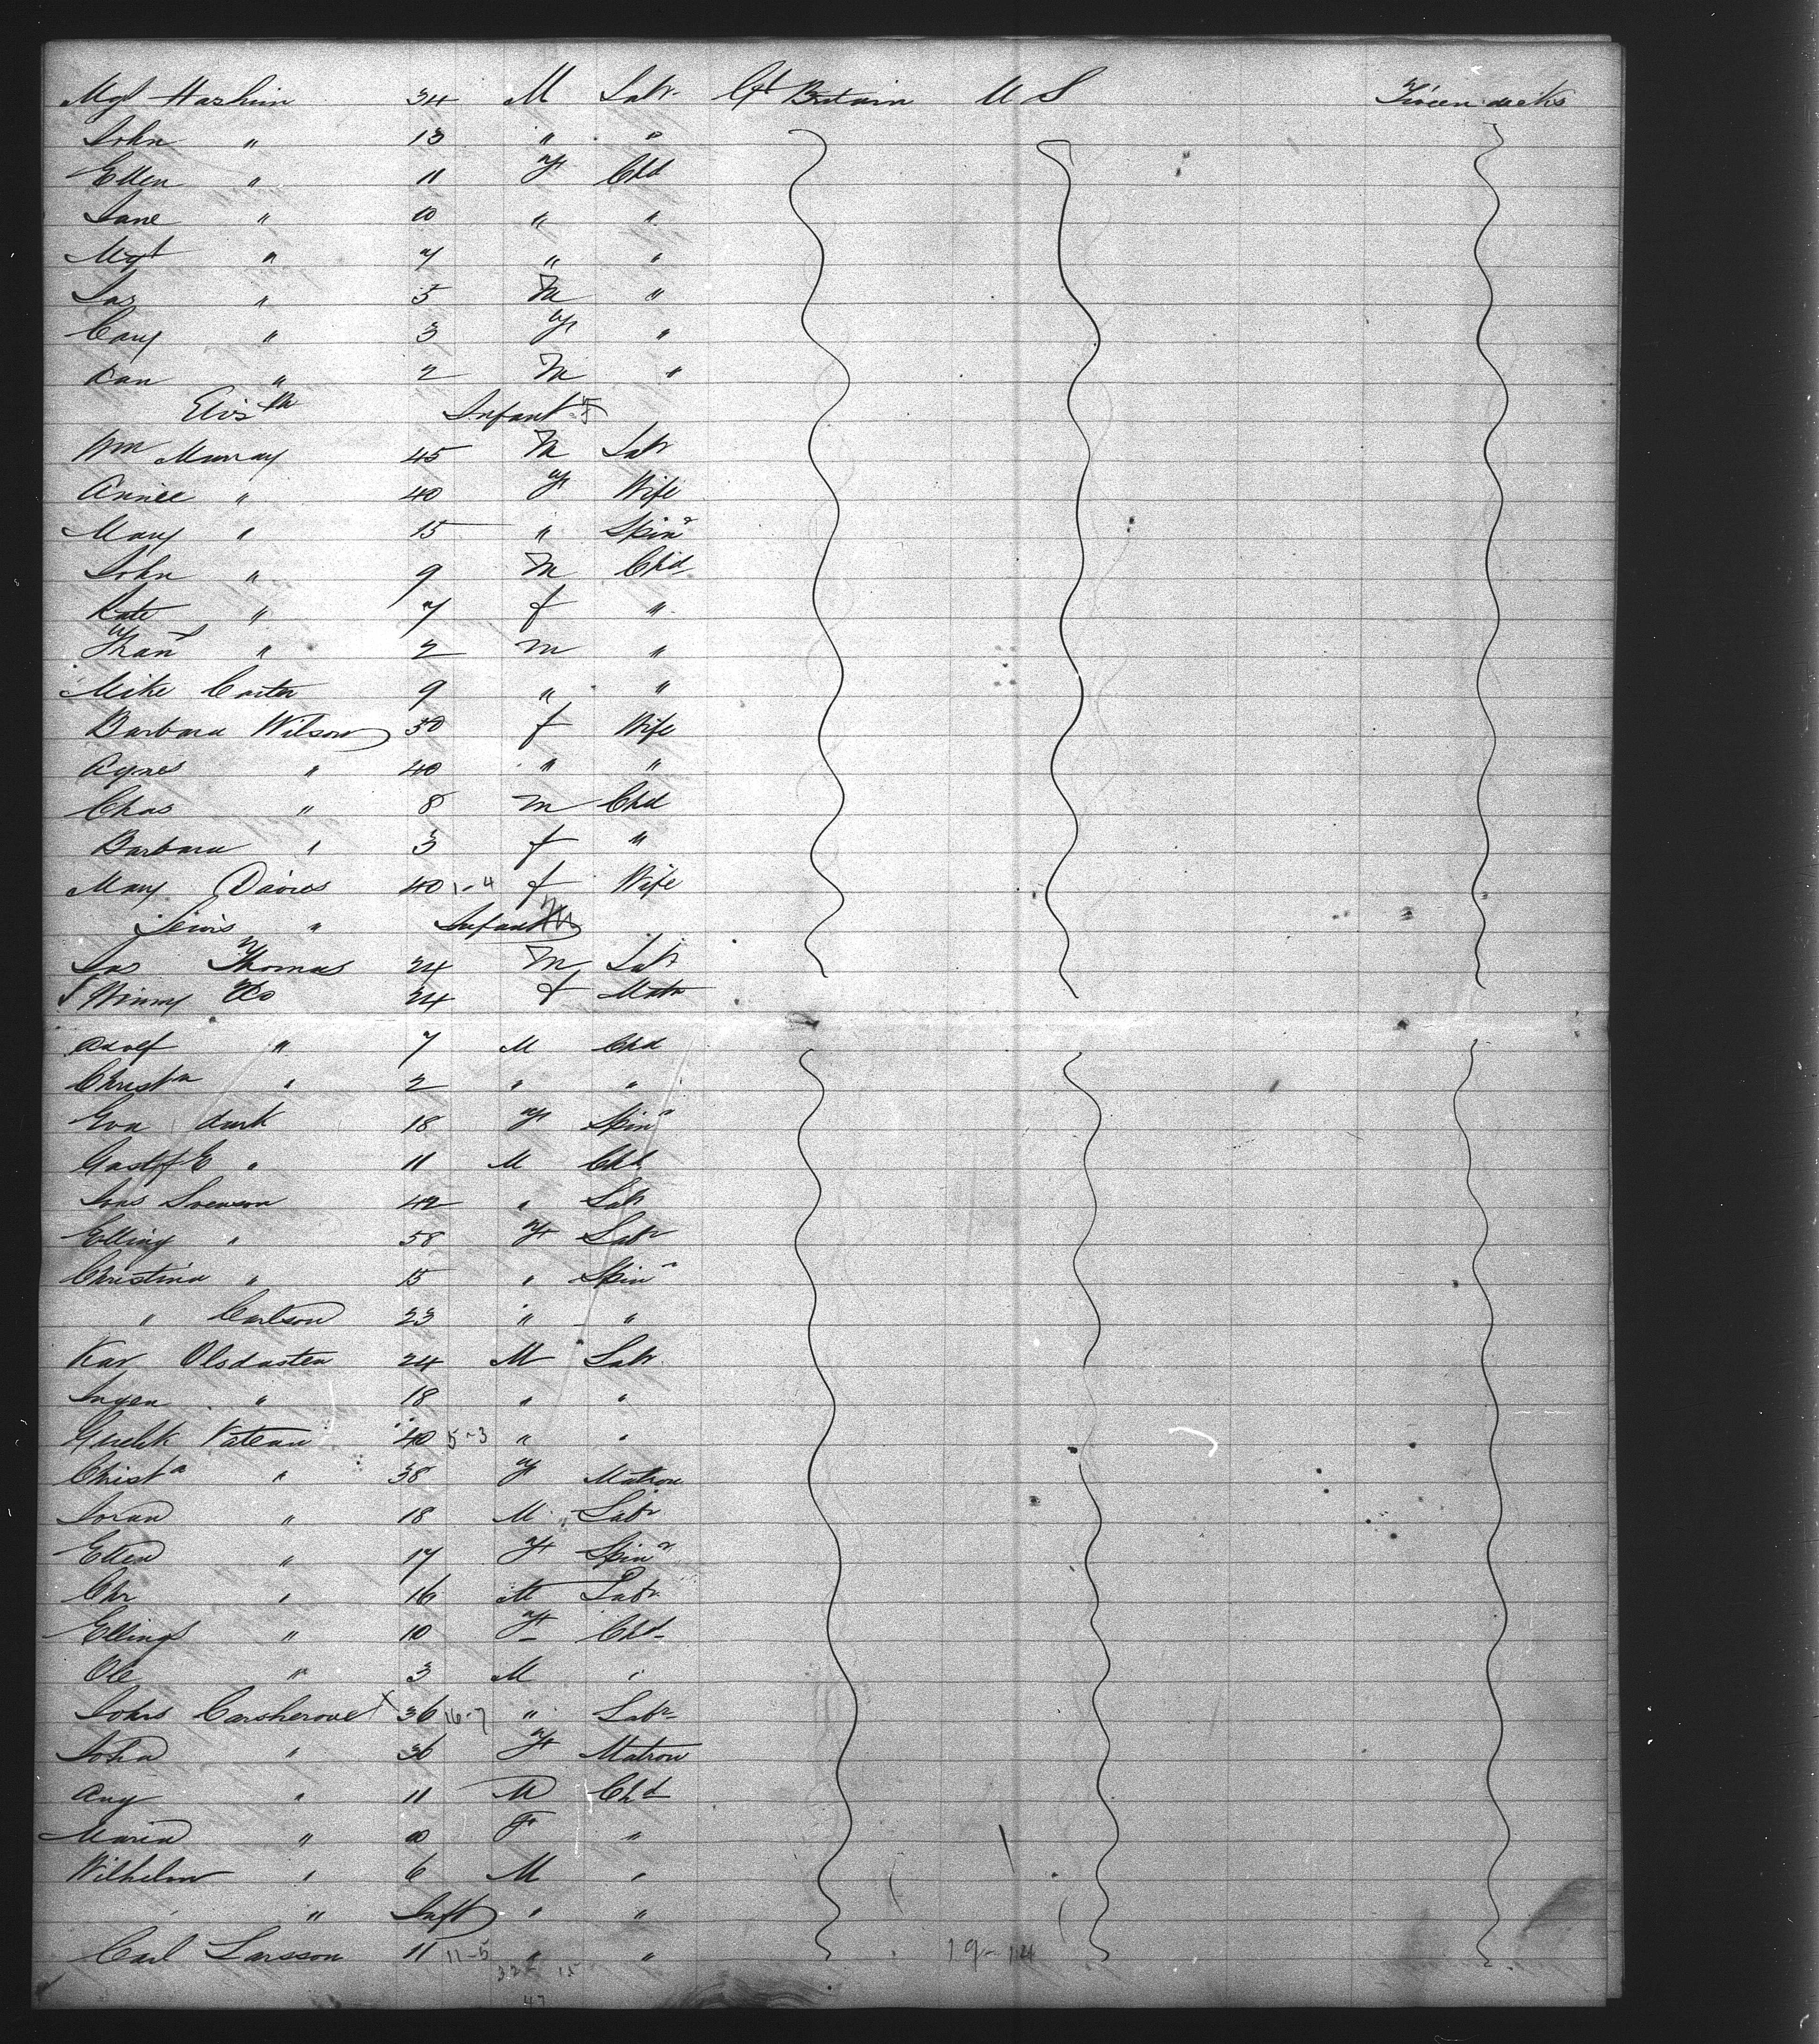 Mgt Hashim 34 M Labr Gt Britain U S Tween decks
John " 13 " "
Ellen " 11 F Chd
Jane " 10 " "
Mgt " 7 " "
Jas " 5 M "
Cary " 3 F "
Dan " 2 M "
Elisth Infant F
Wm Murray 45 M Labr
Annie " 40 F Wife
Mary " 15 " Spinr
John " 9 M Chd
Kate " 7 f "
Frans " 2 m "
Mike Carter 9 " "
Barbara Wilson 30 f Wife
Agnes " 40 " "
Chas " 8 m Chd
Barbara " 3 f "
Mary Davies 40 1-4 f Wife
Lewis " Infant M
Jas Thomas 24 M Labr
Winny Do 24 f Matn
Adolf " 7 M Chd
Christn " 2 " "
Eva Aurk 18 F Spinr
Gustf E " 11 M Chd
Jons Svenson 42 " Labr
Elling " 58 F Labr
Christina " 15 " Spinr
" Carlson 23 " "
Kar Olsdasten 24 M Labr
Ingen " 18 " "
Vatean 40 5-3 " "
Christa " 38 F Matron
Joran " 18 M Labr
Ellen " 17 F Spinr
Chr " 16 M Labr
Elling " 10 F Chd
Ole " 3 M "
Johs Carsherove 36 16-7 " Labr
Joha " 36 F Matron
Aug " 11 M Chd
Maria " 10 F "
Wilhelm " 6 M "
" Inft " "
Carl Larsson 11 11-5 " " 19-14
32 15
47